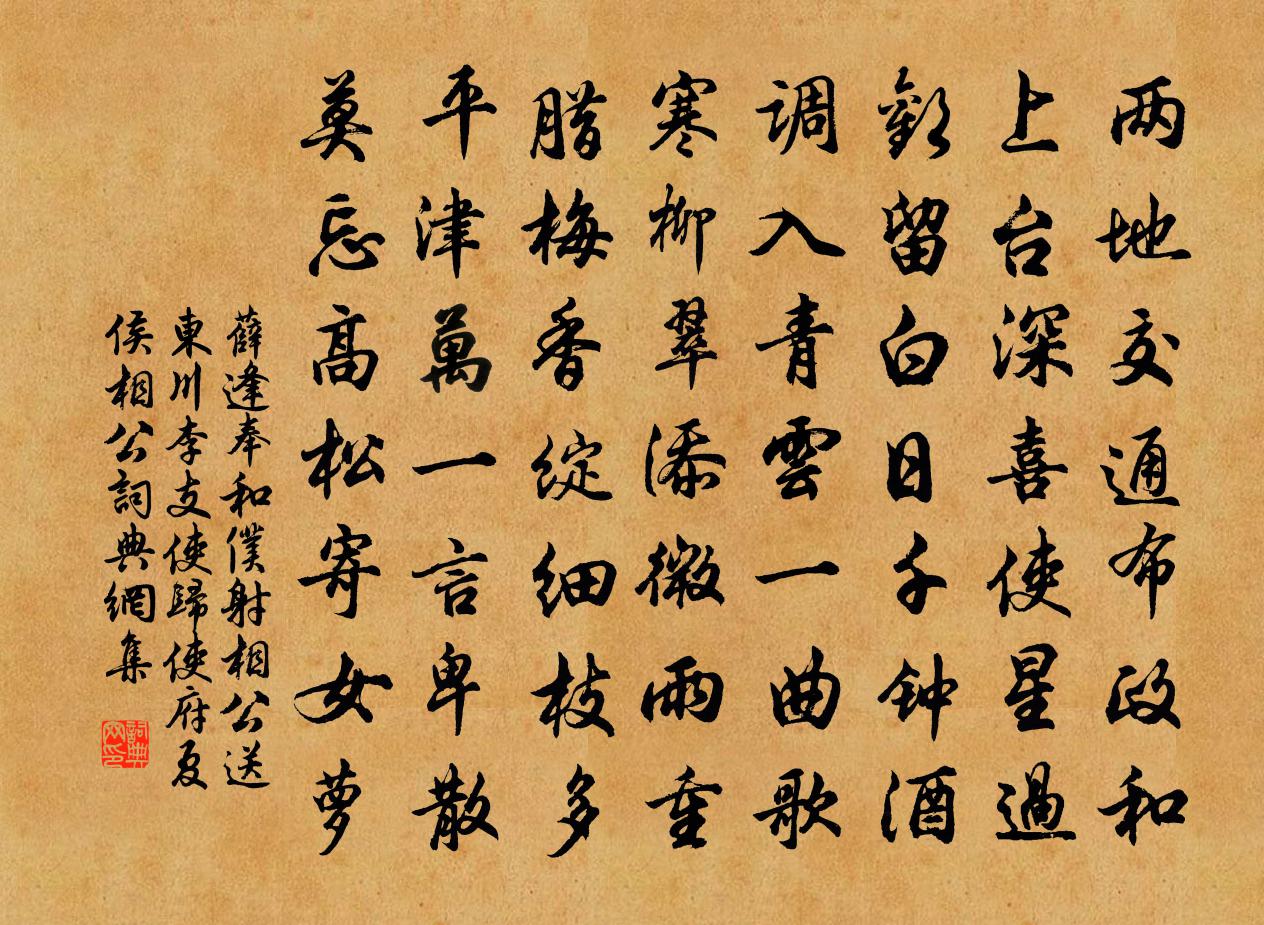 两地交通布政和
上台深喜使星過
歡留白日千钟酒
调入青雲一曲歌
寒柳翠添微雨重
腊梅香綻细枝多
平津萬一言卑散
莫忘高松寄女萝
薛逢奉和僕射相公送
東川李支使歸使府夏
侯相公詞典網集
詞典
网印